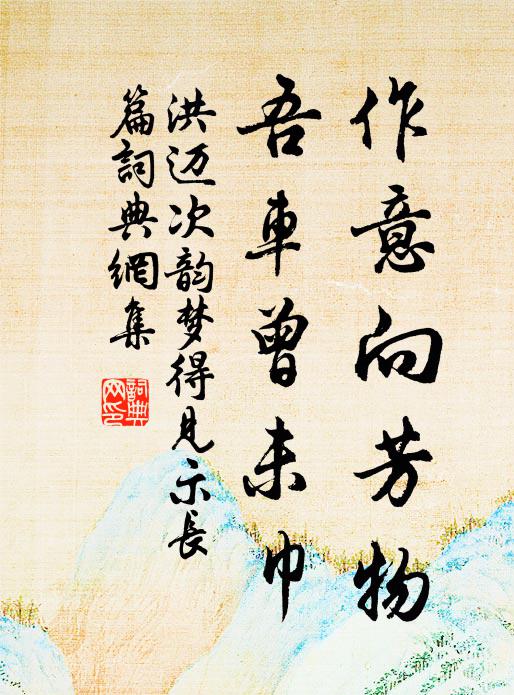 作意向芳物
吾車曾未巾
洪迈次韵梦得见示長
篇詞典網集
詞典网印